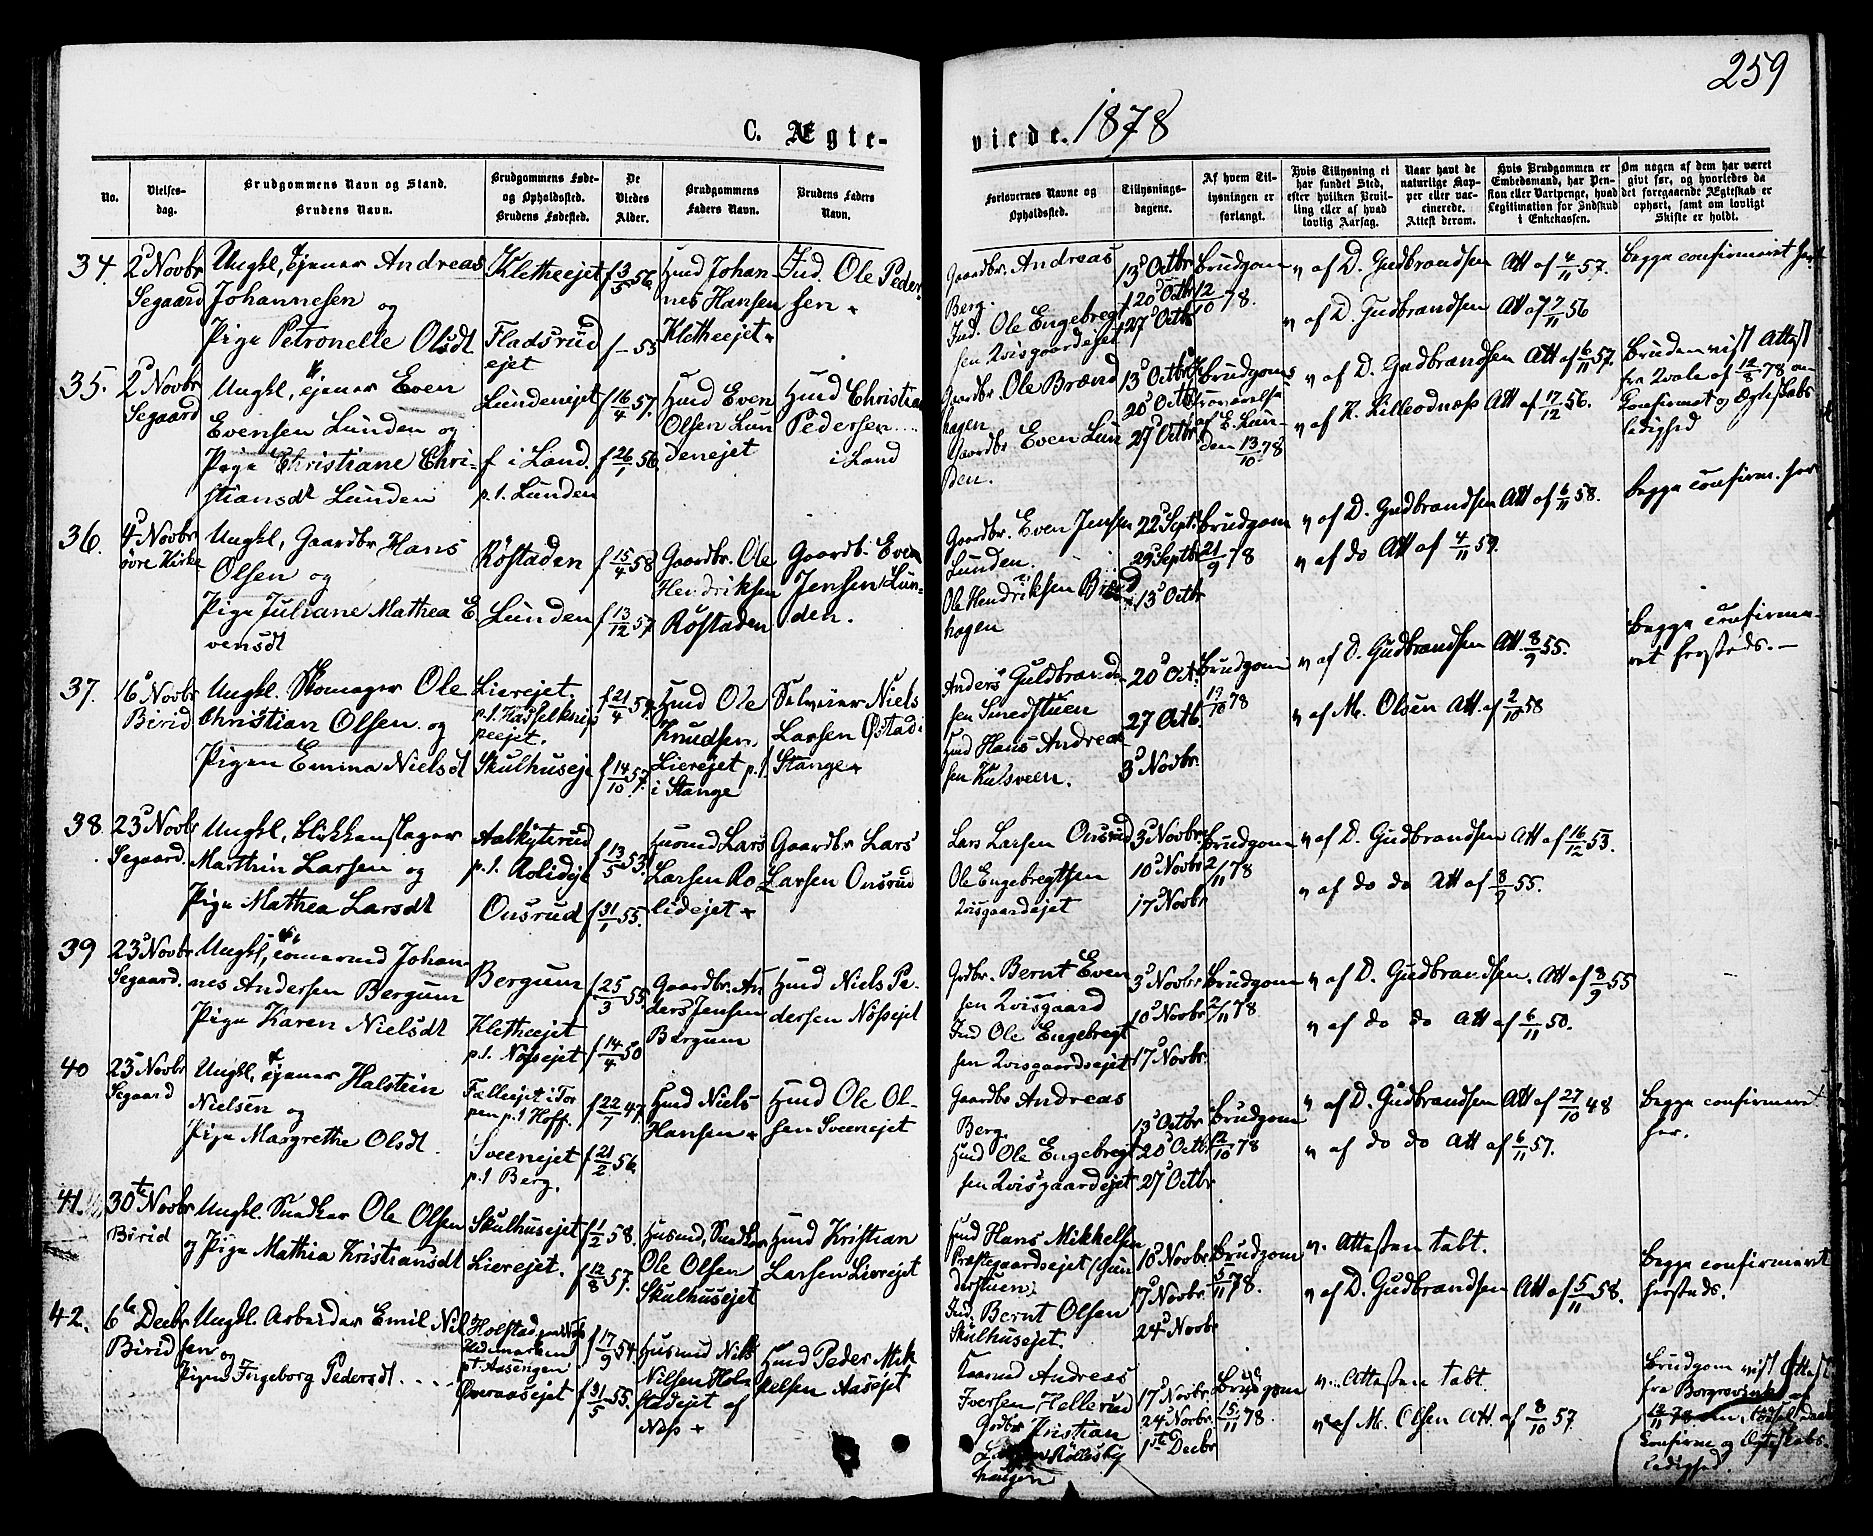 259
C. Ægte-
viede. 1878
No.
Vielses-
dag.
Brudgommens Navn og Stand.
Brudens Navn.
Brudgommens Føde-
og Opholdssted.
Brudens Fødested.
De
Viedes
Alder.
Brudgommens
Faders Navn.
Brudens Faders
Navn.
Forlovernes Navne og
Opholdssted.
Tillysnings-
dagene.
Af hvem Til-
lysningen er
forlangt.
Hvis Tillysning ei
har fundet Sted,
efter hvilken Bevil-
ling eller af hvad
lovlig Aarsag.
Naar havt de
naturlige Kop-
per eller vac-
cinerede.
Attest derom.
Hvis Brudgommen er
Embedsmand, har Pen-
sion eller Vartpenge, hvad
Legitimation for Indskud
i Enkekassen.
Om nogen af dem har været
gift før, og hvorledes da
det foregaaende Ægteskab er
ophørt, samt om lovligt
Skifte er holdt.
34.
2d Novbr
Segaard
Ungkl, Tjener Andreas
Johannesen og
Pige Petronelle Olsdt
Kletheejet
Fladsrud
ejet
f 3/5 56.
f – 55
Hmd Johan-
nes Hansen
Kletheejet
Ind. Ole Peder-
sen
Gaardbr. Andreas
Berg.
Ind. Ole Engebregt
sen Qvisgaardejet
13d Octbr
20d Octbr
27d Octbr
Brudgom
12/10 78.
v af D. Gudbrandsen Att af 4/11 57.
v af D. Gudbrandsen Att af 7/11 56
Begge confirmeret her
35.
2d Novbr
Segaard
Ungkl, Tjener Even
Evensen Lunden og
Pige Christiane Chri-
stiansdt Lunden
Lundenejet
f i Land.
p.t. Lunden
f 16/4 57.
f 26/1 56.
Hmd Even
Olsen Lun
denejet
Hmd Christian
Pedersen
i Land
Gaardbr. Ole Brænd
hagen
Gaardbr Even Lun
den.
13d Octbr
20d Octbr
27d Octbr
Brudgoms
af E. Lun-
den 13/10 78
v af D. Gudbrandsen Att af 6/11 57.
v af K. Lilleodnæss Att af 17/12 56.
Bruden vist Attest
fra Qvale af 12/8 78 om
Confirmet og Ægteskabs
ledighed
36.
4d Novbr
øvre Kirke
Ungkl, Gaardbr. Hans
Olsen og
Pige Juliane Mathea E
vensdt
Röstaden
Lunden
f 15/4 58
f 13/12 57
Gaardbr. Ole
Hendriksen
Röstaden
Gaardb. Even
Jensen Lun-
den.
Gaardbr. Even Jensen
Lunden.
Ole Hendriksen Brænd
hagen
22d Septbr
29d Septbr
13d Octbr
Brudgom
21/9 78
v af D. Gudbrandsen Att af 6/11 58.
v af do Att af 4/11 59.
Begge confirm. her
37.
16d Novbr
Birid
Ungkl. Skomager Ole
Christian Olsen og
Pigen Emma Nielsdt
Lierejet.
Skulhuseje
f 21/4 54.
f 14/10 57.
Hmd Ole
Knudsen
Lierejet p.t.
i Stange
Selveier Niels
Larsen Østad i
Stange
Anders Guldbrand
sen Smedstuen
Hmd Hans Andrea-
sen Kulsveen.
20d Oct.
27 Octb.
3d Novbr.
Brudgom
19/10 78
v af D. Gudbrandsen Att. 8/9 55.
v af M. Olsen Att. af 2/10 58
Begge confirme-
ret hersteds. –
38.
23d Novbr
Segaard.
Ungkl, blikkenslager
Marthin Larsen og
Pige Mathea Larsdt
Aalkyterud
p.t. Rolideje
Onsrud
f 13/5 53
f 31/1 55.
Husmd Lars
Larsen Ro
lidejet
Gaardbr Lars
Larsen Onsrud
Lars Larsen Onsrud
Ole Engebregtsen
Qvisgaardejet
3d Novbr.
10d Novbr
17d Novbr
Brudgom
2/11 78
v af D. Gudbrandsen Att af 16/12 53.
v af do do Att af 8/9 55.
39
23d Novbr
Segaard.
Ungkl, Tømmermd Johan-
nes Andersen Bergum
Pige Karen Nielsdt
Bergum
Kletheejet
p.t. Nøssejet
f 25/3 55.
f 14/4 50
Gaardbr. An
ders Jensen
Bergum
Hmd Niels Pe-
dersen Nössejet
Grdbr. Bernt Even
sen Qvisgaard
Ind Ole Engebregt
sen Qvisgaardsejet
3d Novbr
10d Novbr
17d Novbr.
Brudgom
2/11 78
v af D. Gudbrandsen. Att af 8/9 55
v af do do Att af 6/11 50.
40
23d Novbr
Segaard
Ungkl, Tjener Halstein
Nielsen og
Pige Margrethe Olsdt.
Fællesejet i Tor
pen p.t Hoff.
Sveenejet
p.t Berg.
f 22/7 47.
f 21/2 56.
Hmd Niels
Hansen
Hmd Ole Ol-
sen Sveenejet
Gaardbr Andreas
Berg.
Hmd Ole Engebregt
sen Qvisgaardejet
13d Octbr
20d Octbr
27d Octbr
Brudgom
12/10 78
v af D. Gudbrandsen Att af 27/10 48
v af do do Att af 6/11 57.
Begge confirmeret
her.
41.
30te Novbr
Birid
Ungkl. Snedker Ole Olsen
og Pige Mathia Kristiansdt
Skulhusejet
Lierejet.
f 1/2 58.
f 12/8 57.
Husmd, Snedker
Ole Olsen
Skulhusejet
Hmd Kristian
Larsen Lierejet
Hmd Hans Mikkelsen
Præstegaardsejet (Gun
derstuen)
Ind. Bernt Olsen
Skulhusejet.
10d Novbr
17d Novbr
24d Novbr
Brudgom
5/11 78.
v. Attesten tabt.
v af D. Gudbrandsen Att af 5/11 58.
Begge confirmeret
hersteds.
42.
6te Decbr
Birid
Ungkl. Arbeider Emil Nil
sen og
Pigen Ingeborg Pedersdt.
Holstad
Hedemarken
pt. Aasengen
Överaasejet
f 17/9 54.
f 31/5 55.
Husmd Nils
Nilsen Hol
stadejet af
Næs
Hmd Peder Mik
kelsen Aasejet
Andreas
Iversen Hellerud
Grdbr Kristian
17d Novbr
24d Novbr.
1ste Decbr
Brudgom
15/11 78.
v. Attesten tabt.
v af M. Olsen Att. af 8/10 57.
Brudgom vist Attest
fra af
Confirm. og Ægteskabs-
ledighed.